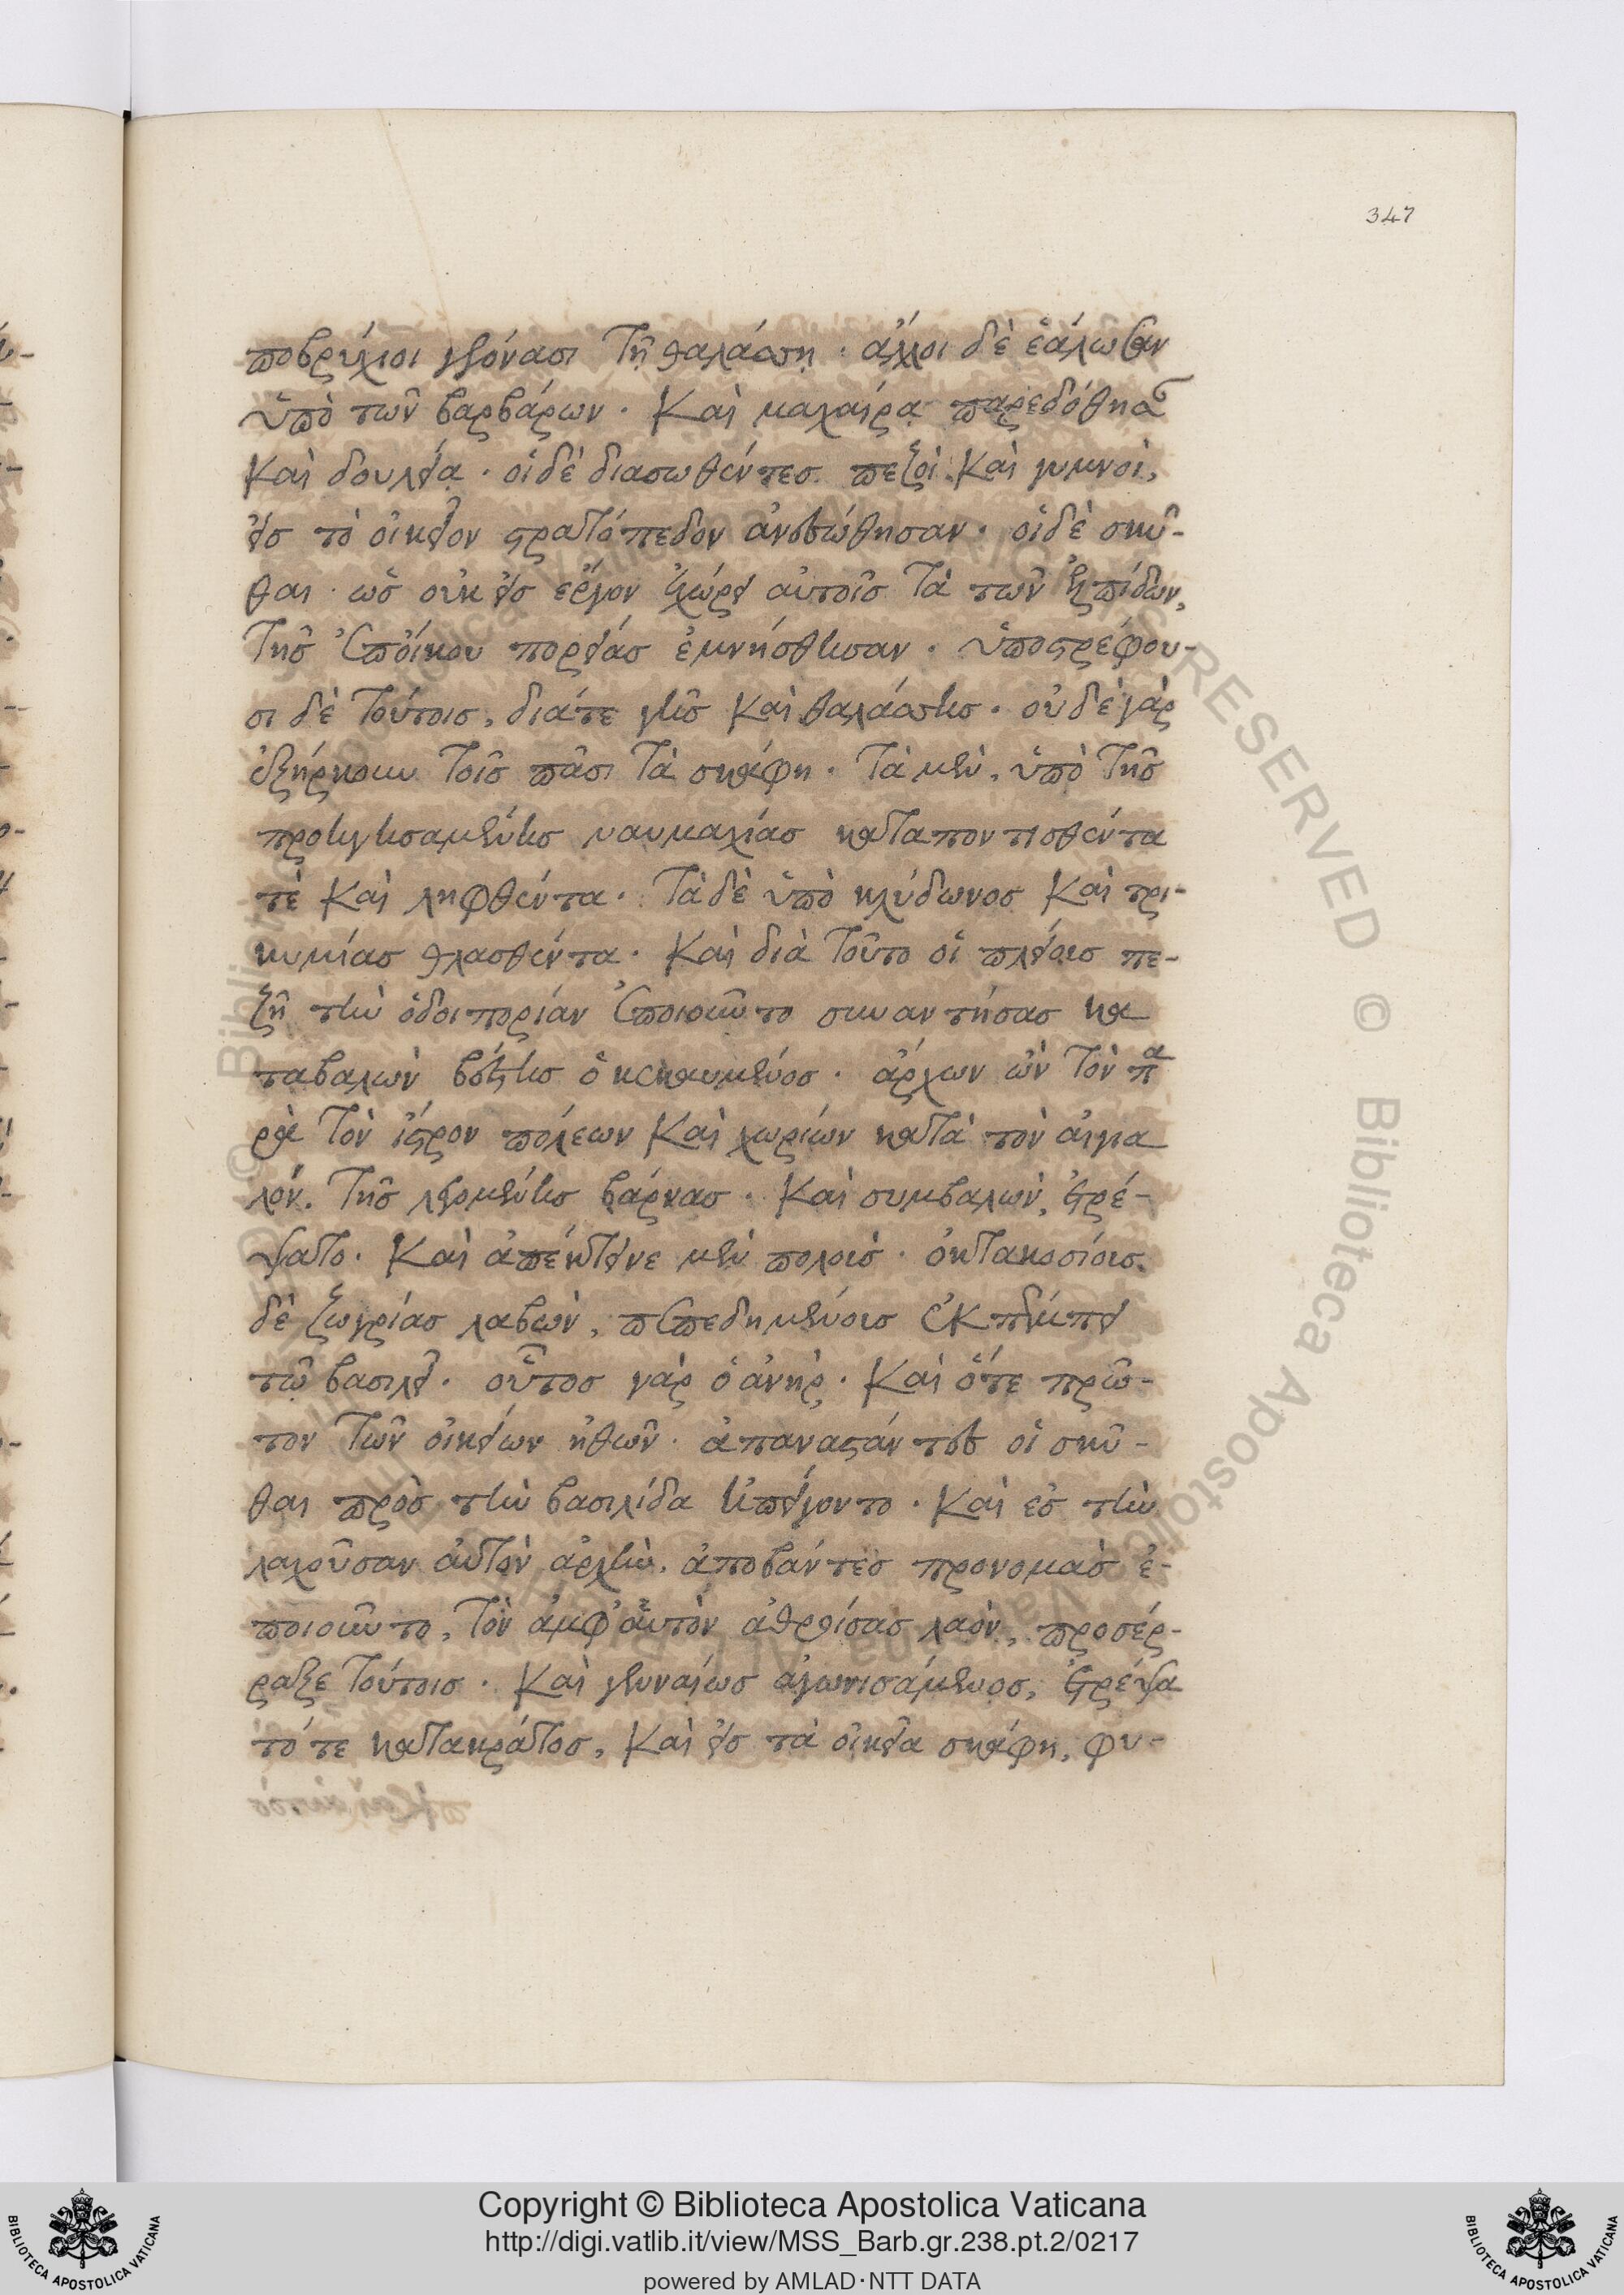 347
ποβρύχιοι γεγόνασι τῇ θαλάσσῃ. ἄλλοι δὲ ἑάλωσαν
ὑπὸ τῶν βαρβάρων. καὶ μαχαίρᾳ παρεδόθησαν
καὶ δουλείᾳ. οἱ δὲ διασωθέντες πεζοὶ καὶ γυμνοὶ,
εἰς τὸ οἰκεῖον στρατόπεδον ἀνεσώθησαν. οἱ δὲ σκύ-
θαι. ὡς οὐκ εἰς ἔργον ἐχώρει αὐτοῖς τὰ τῶν ἐλπίδων,
τῆς ἐπ' οἴκου πορείας ἐμνήσθησαν. ὑποστρέφου-
σι δὲ τούτοις, διά τε γῆς καὶ θαλάσσης. οὐδὲ γὰρ
ἐξήρκουν τοῖς πᾶσι τὰ σκάφη. τὰ μὲν, ὑπὸ τῆς
προηγησαμένης ναυμαχίας καταποντισθέντα
τὲ καὶ ληφθέντα. τὰ δὲ ὑπὸ κλύδωνος καὶ τρι-
κυμίας θλασθέντα. καὶ διὰ τοῦτο οἱ πλείους πε-
ζῇ τὴν ὁδοιπορίαν ἐποιοῦντο συναντήσας κα
ταβαλὼν βότζης ὁ κεκαυμένος. ἄρχων ὢν τὸν πα
ρὰ τὸν ἴστρον πόλεων καὶ χωρίων κατὰ τὸν αἰγια
λὸν. τῆς λεγομένης βάρνας. καὶ συμβαλὼν, ἐτρέ-
ψατο. καὶ ἀπέκτεινε μὲν πολοὺς. ὀκτακοσίους.
δὲ ζωγρίας λαβὼν, πεπεδημένους ἐκπέμπει
τῷ βασιλεῖ. οὗτος γὰρ ὁ ἀνὴρ. καὶ ὅτε πρῶ-
τον τῶν οἰκείων ἠθῶν. ἀπαναστάντες οἱ σκύ-
θαι πρὸς τὴν βασιλίδα ἠπείγοντο. καὶ ἐς τὴν
λαχοῦσαν αὐτὸν ἀρχὴν. ἀποβάντες προνομὰς ἐ-
ποιοῦντο, τὸν ἀμφ' αὐτὸν ἀθροίσας λαὸν, προσέρ-
ραξε τούτοις. καὶ γενναίως ἀγωνισάμενος, ἐτρέψα
τό τε κατακράτος, καὶ εἰς τὰ οἰκεῖα σκάφη, φυ-
Copyright © Biblioteca Apostolica Vaticana
http://digi.vatlib.it/view/MSS_Barb.gr.238.pt.2/0217
powered by AMLAD·NTT DATA
BIBLIOTECA APOSTOLICA VATICANA
BIBLIOTECA APOSTOLICA VATICANA